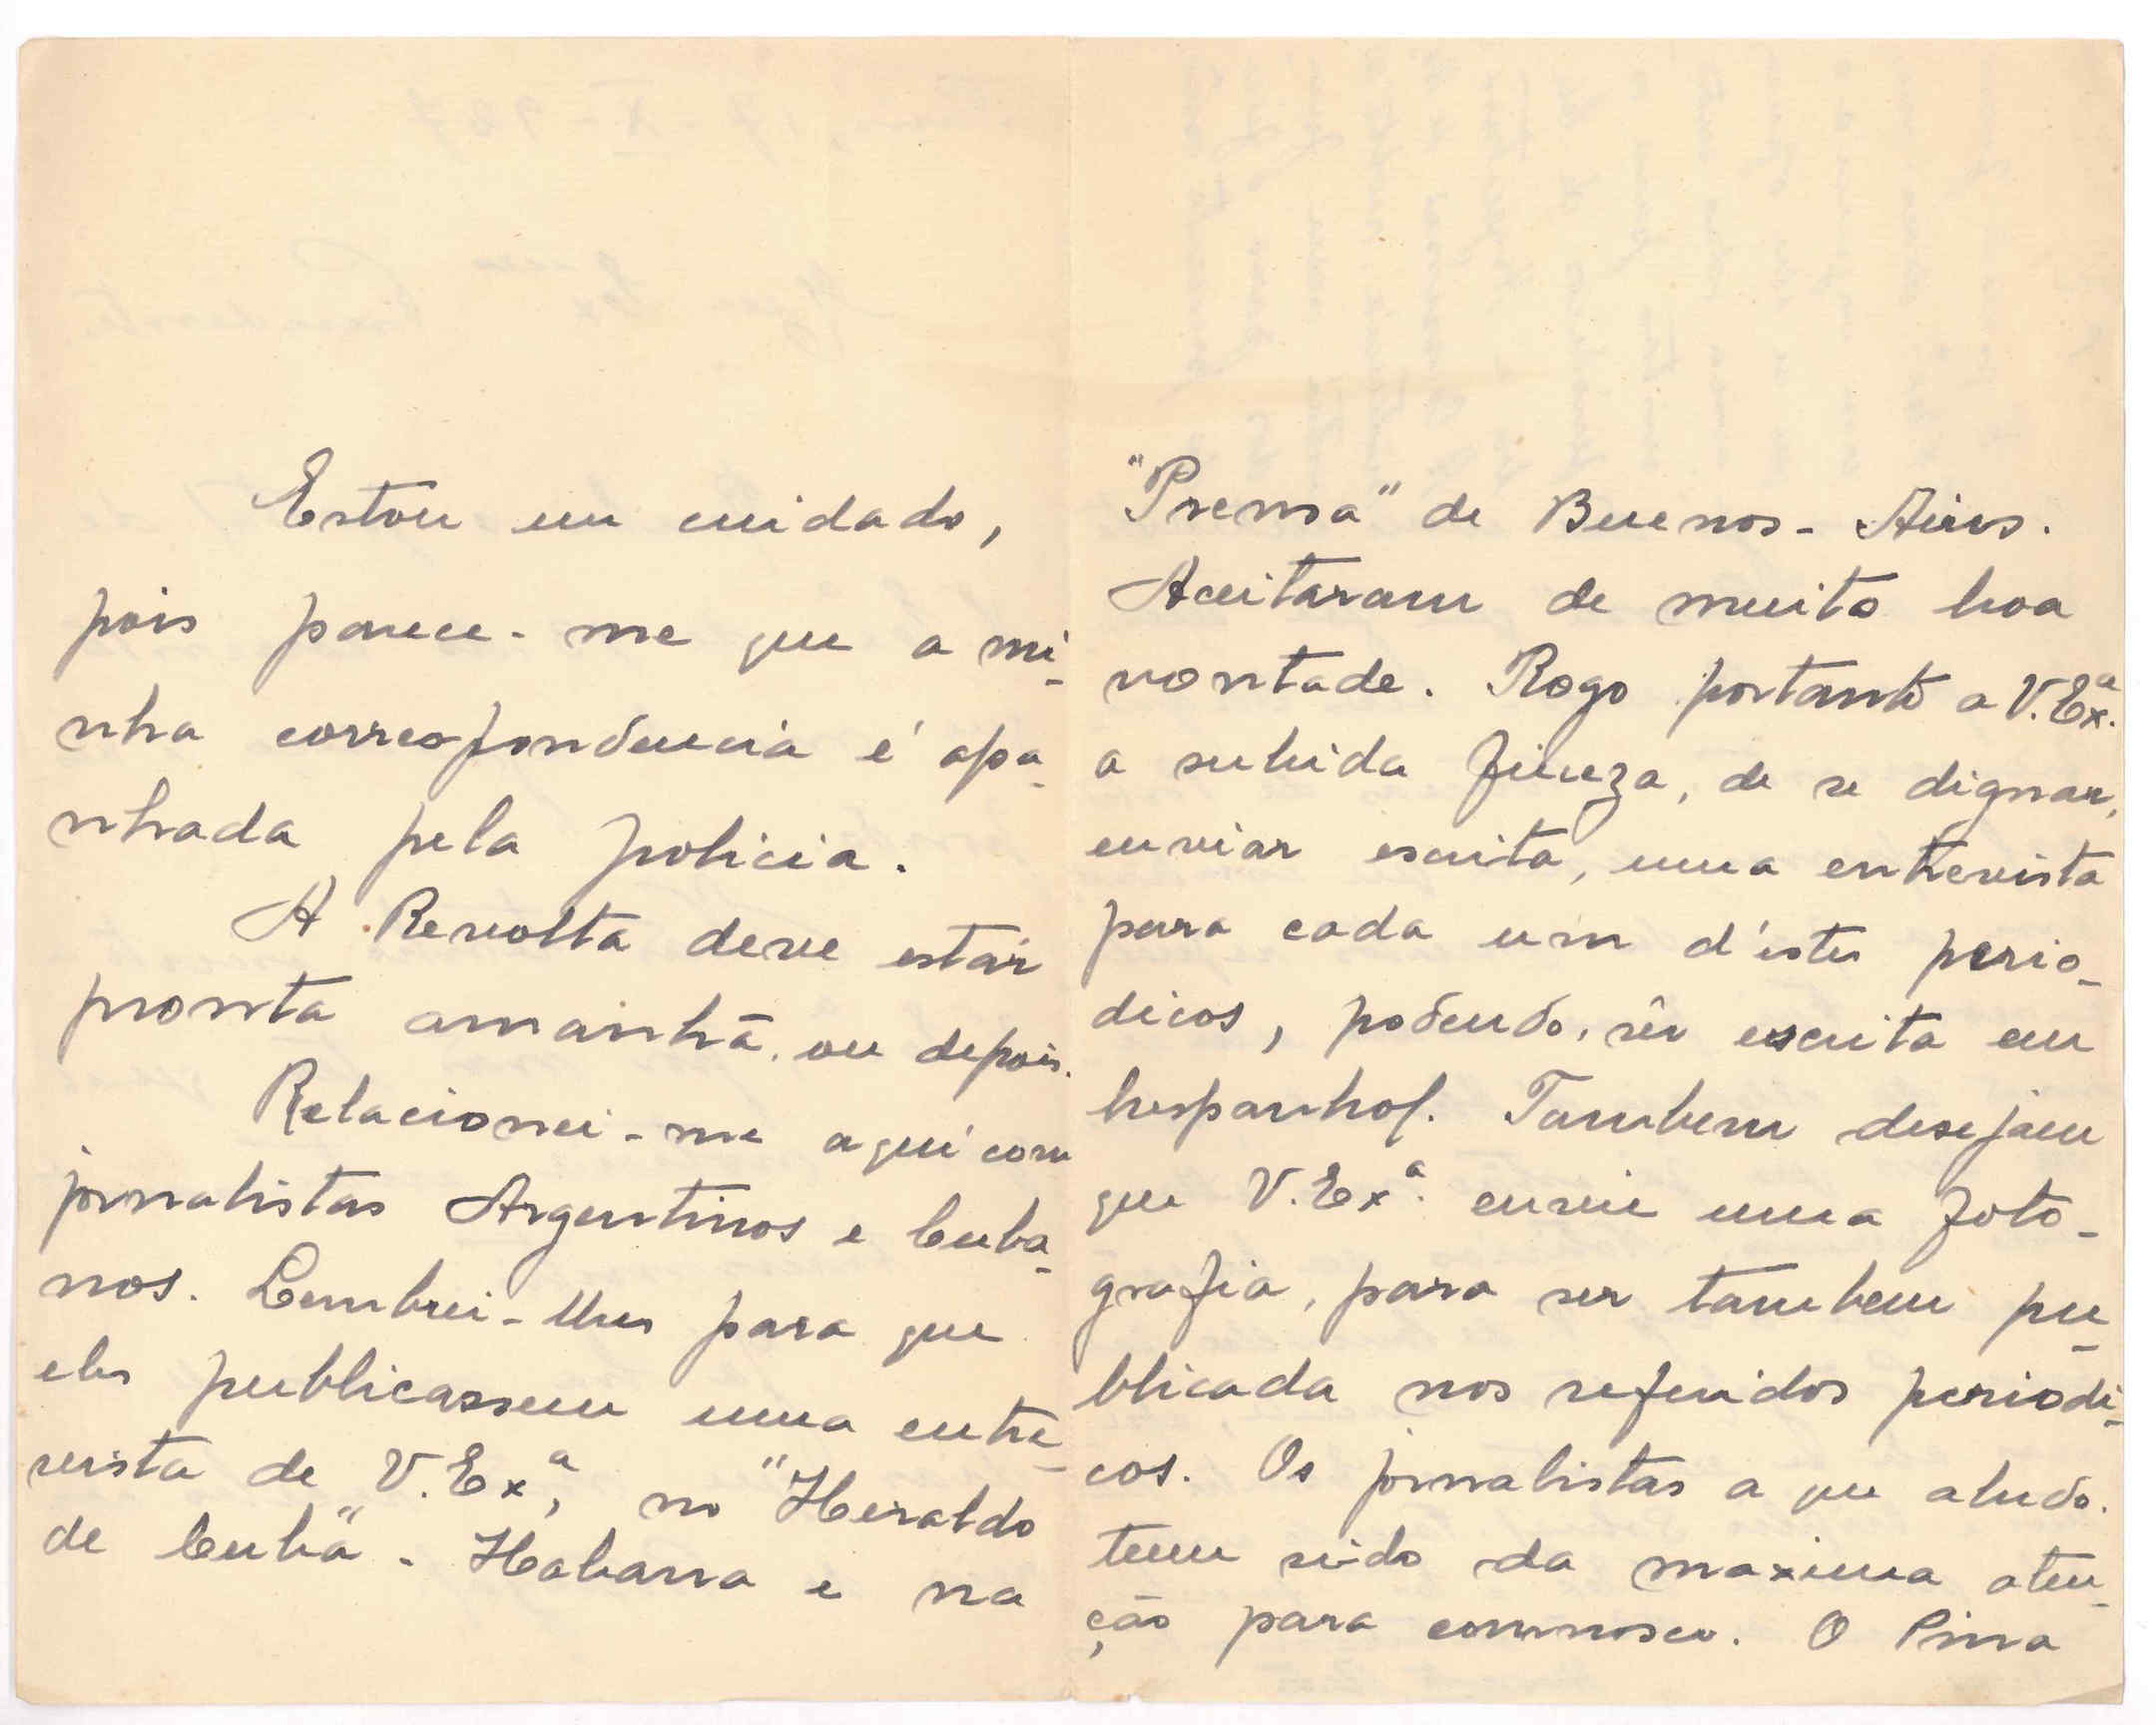 Estou em cuidado,
pois parece-me que a mi-
nha correspondencia é apa-
nhada pela policia.
A Revolta deve estár
pronta amanhã, ou depois.
Relacionei-me aqui com
jornalistas Argentinos e Cuba-
nos. Lembrei-lhes para que
eles publicassem uma entre-
vista de V. Exª, no "Heraldo
de Cuba" - Habana e na
"Prensa" de Buenos-Aires.
Aceitaram de muito boa
vontade. Rogo portanto a V. Exª.
a subida fineza, de se dignar,
enviar escrita, uma entrevista
para cada um d'estes perio-
dicos, podendo, sêr escrita em
hespanhol. Tambem desejam
que V. Exª. envie uma foto-
grafia, para ser tambem pu-
blicada nos referidos periodi-
cos. Os jornalistas a que aludo.
teem sido da maxima aten-
ção para comnosco. O Pina